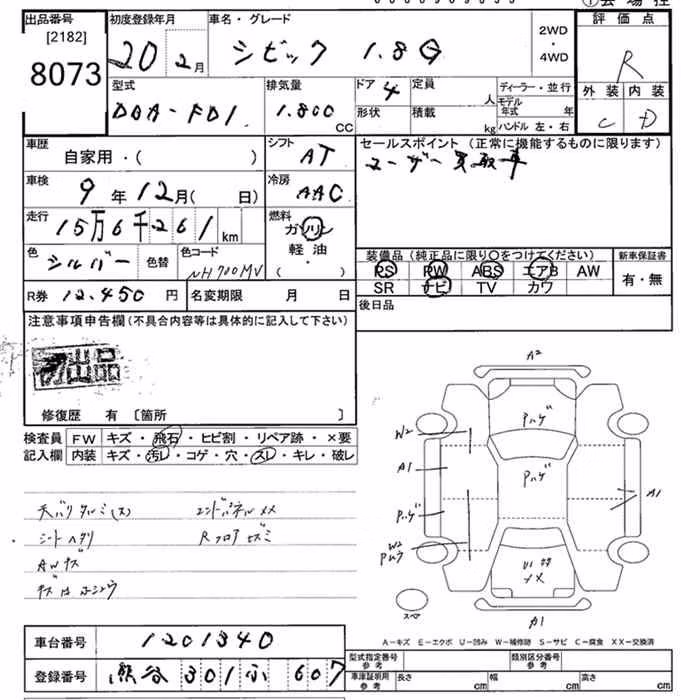 出品番号
[2182]
8073
初度登録年月
20 2月
車名・グレード
シビック 1.8G
2WD
・
4WD
評価点
R
外装 内装
C D
型式
DBA-FD1
排気量
1.800
CC
ドア 4
形状
定員
人
積載
kg
ディーラー・並行
モデル年式 年
ハンドル 左・右
車歴
自家用・( )
シフト
AT
セールスポイント (正常に機能するものに限ります)
ユーザー買取車
車検
9年12月( 日)
冷房
AAC
走行
15万6千261km
燃料
ガソリン
軽油
( ・ )
色
シルバー
色替
色コード
NH700MV
装備品 (純正品に限り〇をつけてください)
PS PW ABS エアB AW
SR ナビ TV カワ
新車保証書
有・無
R券 12.450 円
名変期限 月 日
後日品
注意事項申告欄(不具合内容等は具体的に記入して下さい)
初出品
修復歴 有 〔箇所 〕
検査員
記入欄
FW キズ・飛石・ヒビ割・リペア跡・×要
内装 キズ・汚レ・コゲ・穴・スレ・キレ・破レ
天バリタルミ(大) エンドパネルメメ
シートヘタリ Rフロアヒズミ
AWキズ
A2
Pハゲ
W2
A1
Pハゲ
Pハゲ
A1
W2
A1
スペア
A-キズ E-エクボ U-凹み W-補修跡 S-サビ C-腐食 XX-交換済
車台番号 1201340
登録番号 熊谷 301 ふ 607
型式指定番号
参考
類別区分番号
参考
車庫証明用
参考
長さ cm 幅 cm 高さ cm